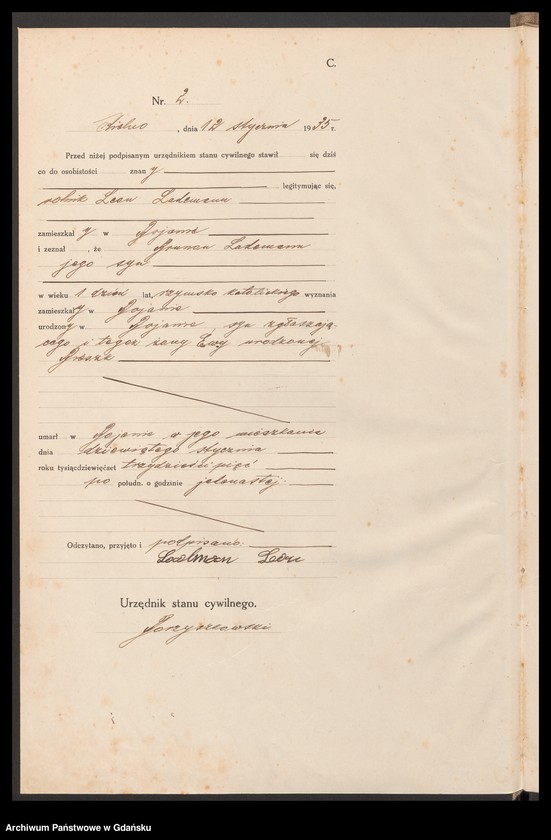 C.
Nr. 2.
, dnia 12 stycznia 1935 r.
Przed niżej podpisanym urzędnikiem stanu cywilnego stawił się dziś
co do osobistości znany
legitymując się,
rolnik Leon Lademann
zamieszkały w
i zeznał, że Lademann
jego syn
w wieku 1 dzień lat, rzymsko katolickiego wyznania
zamieszkały w
urodzony w , syn zgłaszają-
cego i tegoż żony Ewy urodzonej
umarł w w jego mieszkaniu
dnia dziewiątego stycznia
roku tysiącdziewięćset trzydzieści pięć
po połudn. o godzinie jedenastej.
Odczytano, przyjęto i podpisano:
Lademan Leon
Urzędnik stanu cywilnego.
Archiwum Państwowe w Gdańsku